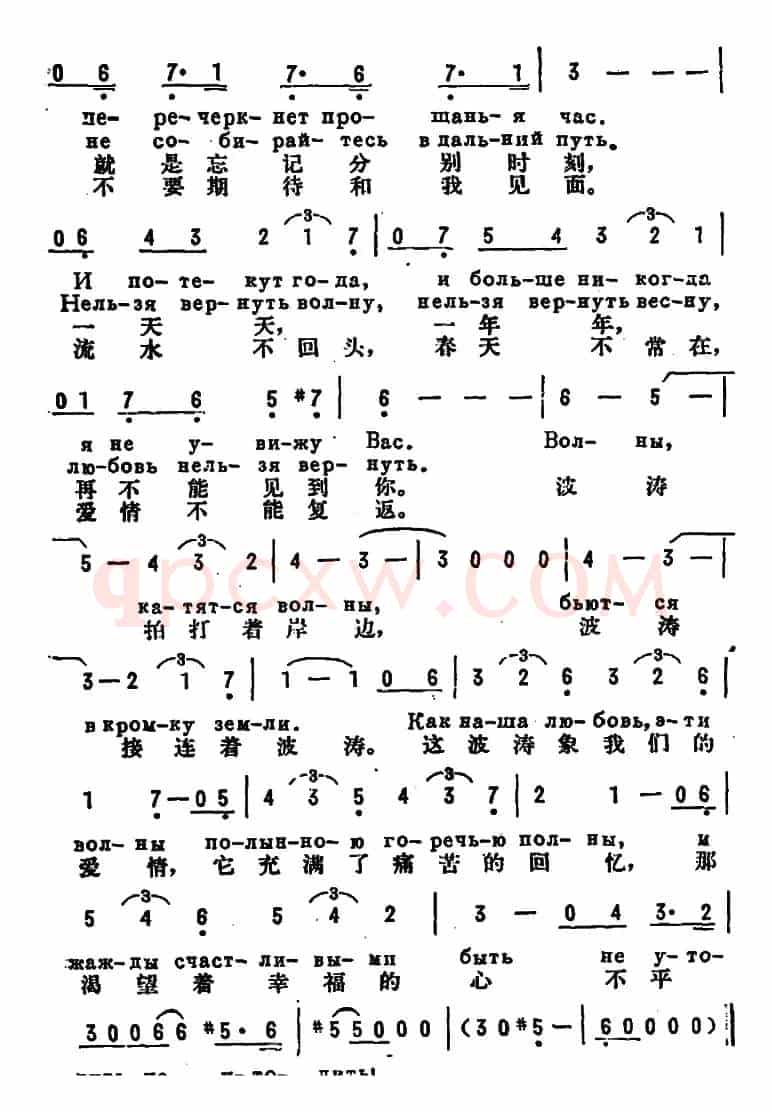 0 6 7· 1 7· 6 7· 1 | 3 — — — |
пе- ре-черк-нет про- щань-я час.
не со- би-рай-тесь в даль-ний путь.
就 是 忘 记 分 别 时 刻,
不 要 期 待 和 我 见 面。
0 6 4 3 2 1 7 | 0 7 5 4 3 2 1 |
И по-те- кут го-да, и боль-ше ни-ког-да
Нель-зя вер-нуть вол-ну, нель-зя вер-нуть вес-ну,
一 天 天, 一 年 年,
流 水 不 回 头, 春 天 不 常 在,
0 1 7 6 5 #7 | 6 — — — | 6 — 5 — |
я не у- ви-жу Вас. Вол- ны,
лю-бовь нель-зя вер-нуть.
再 不 能 见 到 你。 波 涛
爱 情 不 能 复 返。
5 — 4 3 2 | 4 — 3 — | 3 0 0 0 | 4 — 3 — |
qpcxw.COM
ка-тят-ся вол-ны, бьют-ся
拍 打 着 岸 边, 波 涛
3 — 2 1 7 | 1 — 1 0 6 | 3 2 6 3 2 6 |
в кром-ку зем-ли. Как на-ша лю-бовь, э-ти
接 连 着 波 涛。 这 波 涛 象 我 们 的
1 7 — 0 5 | 4 3 5 4 3 7 | 2 1 — 0 6 |
вол-ны по-лын-но-ю го-речь-ю пол-ны, и
爱 情, 它 充 满 了 痛 苦 的 回 忆, 那
5 4 6 5 4 2 | 3 — 0 4 3· 2 |
жаж-ды счаст-ли-вы-ми быть не у-то-
渴 望 着 幸 福 的 心 不 平
3 0 0 6 6 #5· 6 | #5 5 0 0 0 | (3 0 #5 — | 6 0 0 0 0) ‖